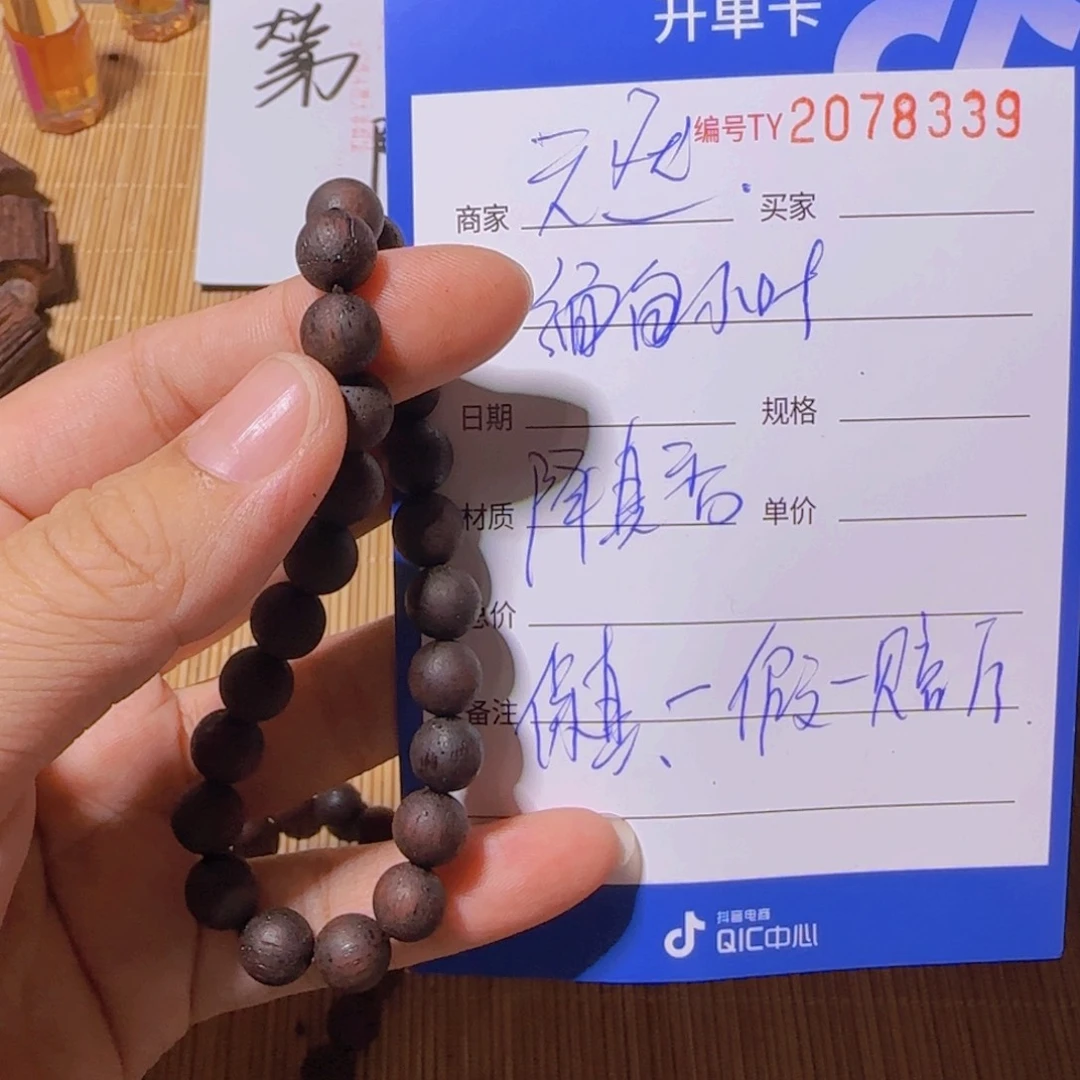 第
开单卡
编号TY2078339
商家 买家
缅甸小叶
日期 规格
材质 降真香 单价
总价
备注 保真、一假一赔万
抖音电商
QIC中心